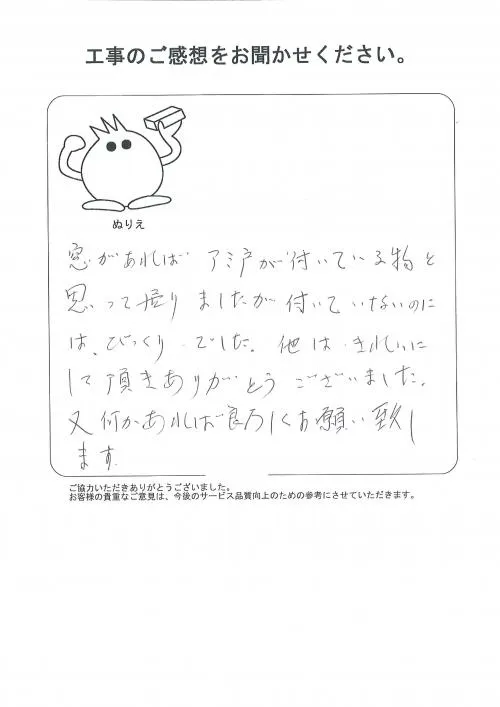 工事のご感想をお聞かせください。
ぬりえ
窓があれば アミ戸が付いている物と
思って居りましたが付いていないのに
は、びっくりでした。他はきれいに
して頂きありがとうございました。
又何かあれば良ろしくお願い致し
ます。
ご協力いただきありがとうございました。
お客様の貴重なご意見は、今後のサービス品質向上のための参考にさせていただきます。